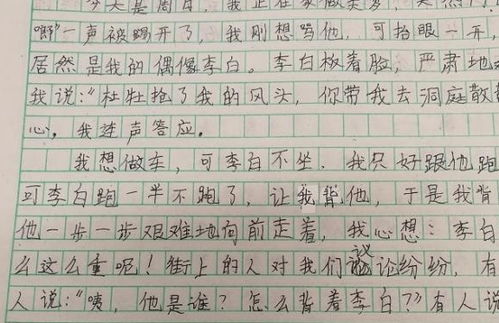 今天是周日，我正在家做美梦，突然门"
嘟"一声被踢开了，我刚想骂他，可抬眼一开，
居然是我的偶像李白。李白板着脸，严肃地对
我说："杜牡抢了我的风头，你带我去洞庭散散
心。我连声答应。
我想做车，可李白不坐，我只好跟他跑
可李白跑一半不跑了，让我背他，于是我背
他一步一步艰难地向前走着，我心想：李白
么这么重呢！街上的人对我们议论纷纷，有
人说："咦，他是谁？怎么背着李白？"有人说